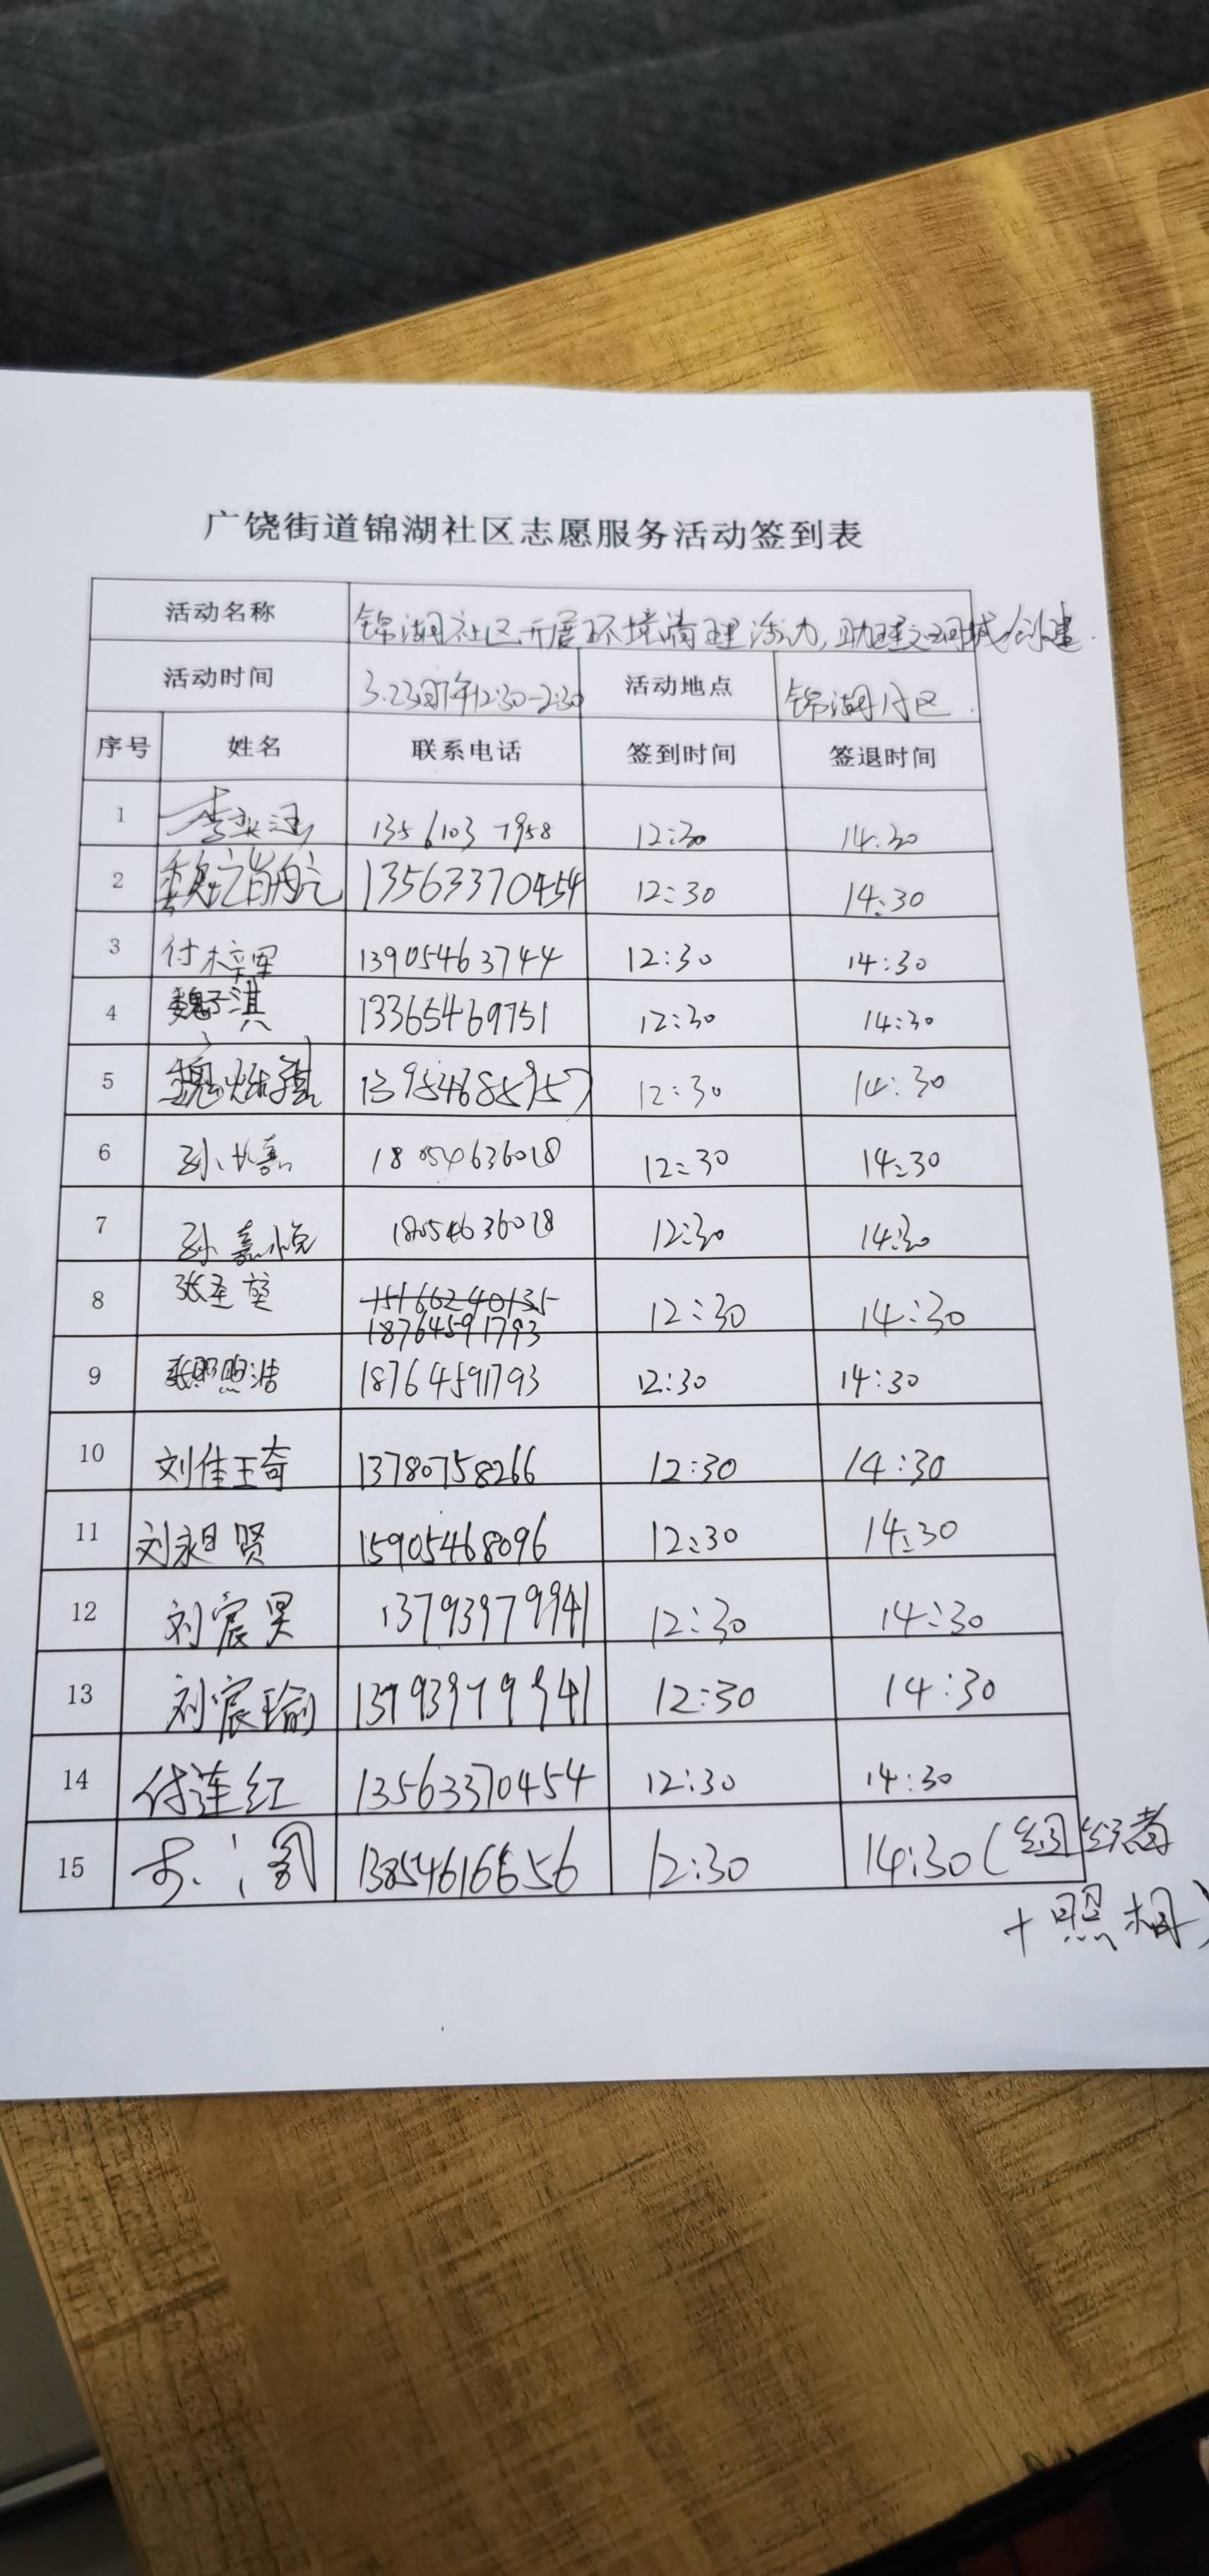 广饶街道锦湖社区志愿服务活动签到表
活动名称 锦湖社区开展环境清理活动,助理文明城创建.
活动时间 3.23日下午12:30-2:30 活动地点 锦湖片区.
序号 姓名 联系电话 签到时间 签退时间
1 李 135 6103 7958 12:30 14:30
2 魏 13563370454 12:30 14:30
3 付梓军 13905463744 12:30 14:30
4 魏子淇 13365469751 12:30 14:30
5 魏 13954685957 12:30 14:30
6 孙 嘉 18054636028 12:30 14:30
7 孙嘉悦 18054636028 12:30 14:30
8 张圣 15166240135 12:30 14:30
18764591793
9 张照浩 18764591793 12:30 14:30
10 刘佳琦 13780758266 12:30 14:30
11 刘昶贤 15905468096 12:30 14:30
12 刘宸昊 13793979941 12:30 14:30
13 刘宸瑜 13793979941 12:30 14:30
14 付连红 13563370454 12:30 14:30
15 13854616656 12:30 14:30(组织者
+照相)